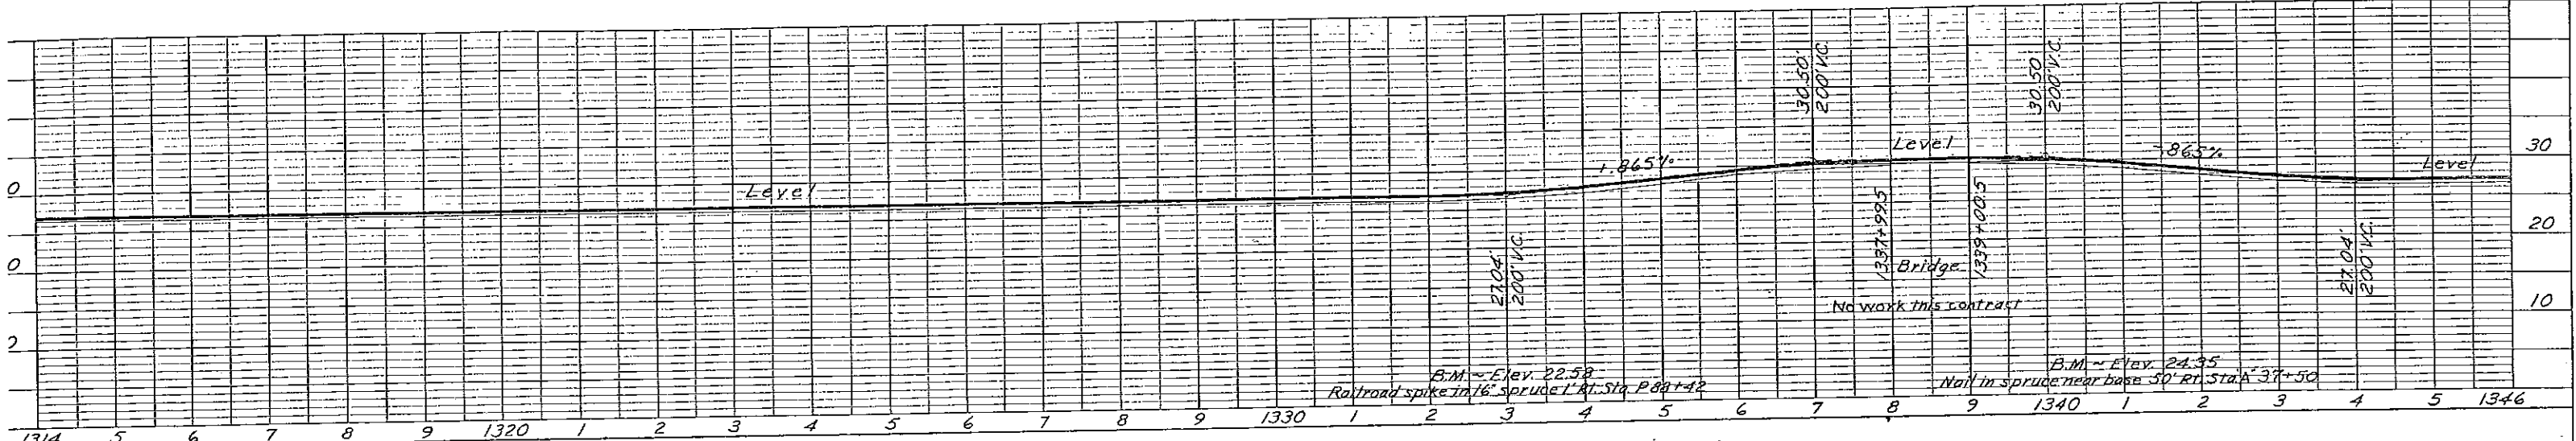 30.50'
200' V.C.
30.50
200' V.C.
Level
+.865%
-.865%
Level
30
0
Level
1337+99.5
1339+00.5
20
0
27.04'
200' V.C.
Bridge
27.04'
200' V.C.
10
No work this contract
2
B.M. ~ Elev. 22.58
Railroad spike in 16" spruce 1' Rt. Sta. P 88+42
B.M. ~ Elev. 24.35
Nail in spruce near base 50' Rt. Sta. "A" 37+50
1314 5 6 7 8 9 1320 1 2 3 4 5 6 7 8 9 1330 1 2 3 4 5 6 7 8 9 1340 1 2 3 4 5 1346